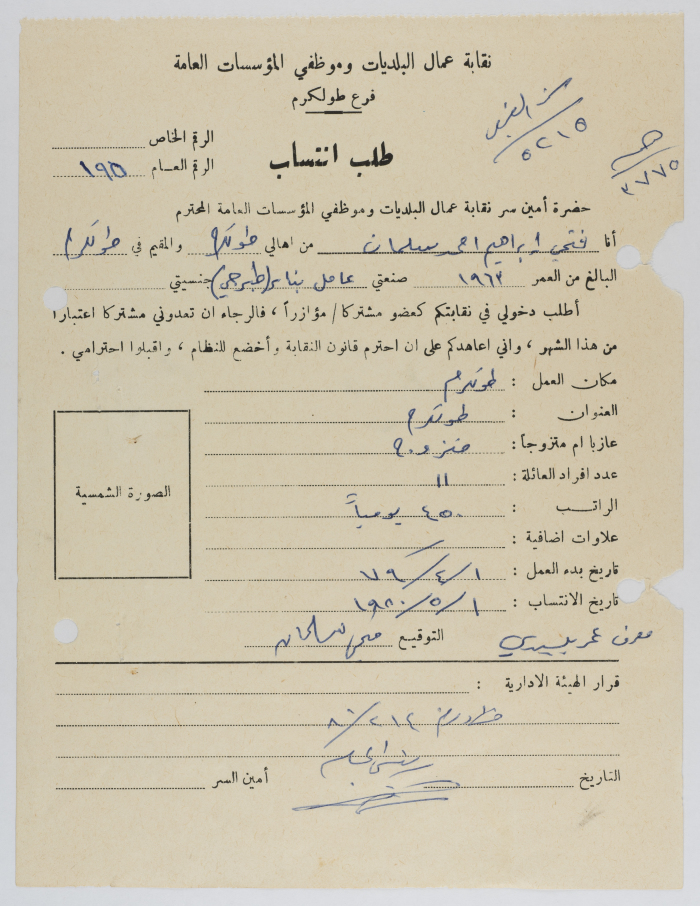 نقابة عمال البلديات وموظفي المؤسسات العامة
فرع طولكرم
٥٢١٥
٣٧٧٥
الرقم الخاص
الرقم العـام ١٩٥
طلب انتساب
حضرة أمين سر نقابة عمال البلديات وموظفي المؤسسات العامة المحترم
أنا فتحي ابراهيم احمد سلمان من اهالي طولكرم والمقيم في طولكرم
البالغ من العمر ١٩٦٣ صنعتي عامل بناء (طبرجي) جنسيتي
أطلب دخولي في نقابتكم كعضو مشتركا / مؤازراً ، فالرجاء ان تعدوني مشتركا اعتبارا
من هذا الشهر ، واني اعاهدكم على ان احترم قانون النقابة وأخضع للنظام ، واقبلوا احترامي .
مكان العمل : طولكرم
العنوان : طولكرم
عازبا ام متزوجاً : متزوج
عدد افراد العائلة : ١١
الصورة الشمسية
الراتـــب : ٤٥٠ يومياً
علاوات اضافية :
تاريخ بدء العمل : ١/٤/٧٩
تاريخ الانتساب : ١/٥/١٩٨٠
معرف عمر التوقيع فتحي سلمان
قرار الهيئة الادارية :
التاريخ
أمين السر